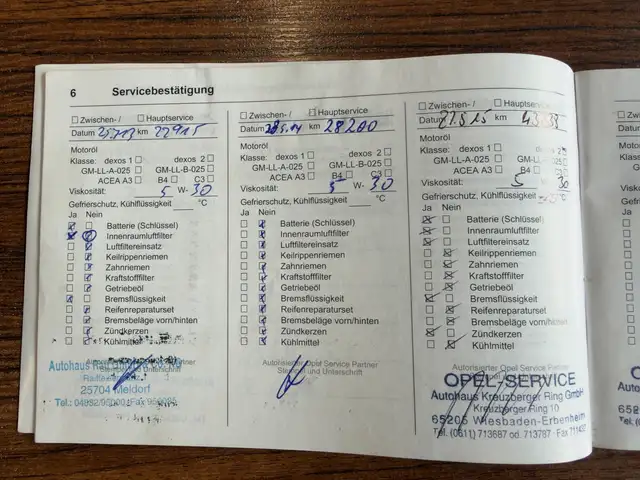 6 Servicebestätigung
☐ Zwischen- / ☐ Hauptservice
Datum 25.7.13 km 22915
Motoröl
Klasse: dexos 1 ☐ dexos 2 ☐
GM-LL-A-025 ☐ GM-LL-B-025 ☐
ACEA A3 ☐ B4 ☐ C3 ☐
Viskosität: 5 W- 30
Gefrierschutz, Kühlflüssigkeit °C
Ja Nein
Batterie (Schlüssel)
Innenraumluftfilter
Luftfiltereinsatz
Keilrippenriemen
Zahnriemen
Kraftstofffilter
Getriebeöl
Bremsflüssigkeit
Reifenreparaturset
Bremsbeläge vorn/hinten
Zündkerzen
Kühlmittel
25704 Meldorf
☐ Zwischen- / ☐ Hauptservice
Datum km 28200
Motoröl
Klasse: dexos 1 ☐ dexos 2 ☐
GM-LL-A-025 ☐ GM-LL-B-025 ☐
ACEA A3 ☐ B4 ☐ C3 ☐
Viskosität: 5 W- 30
Gefrierschutz, Kühlflüssigkeit °C
Ja Nein
Batterie (Schlüssel)
Innenraumluftfilter
Luftfiltereinsatz
Keilrippenriemen
Zahnriemen
Kraftstofffilter
Getriebeöl
Bremsflüssigkeit
Reifenreparaturset
Bremsbeläge vorn/hinten
Zündkerzen
Kühlmittel
Autorisierter Opel Service Partner
Stempel und Unterschrift
☐ Zwischen- / ☐ Hauptservice
Datum 21.5.15 km
Motoröl
Klasse: dexos 1 ☐ dexos 2
GM-LL-A-025 ☐ GM-LL-B-025
ACEA A3 ☐ B4 ☐ C3
Viskosität: 5 30
Gefrierschutz, Kühlflüssigkeit °C
Ja Nein
Batterie (Schlüssel)
Innenraumluftfilter
Luftfiltereinsatz
Keilrippenriemen
Zahnriemen
Kraftstofffilter
Getriebeöl
Bremsflüssigkeit
Reifenreparaturset
Bremsbeläge vorn/hinten
Zündkerzen
Kühlmittel
Autorisierter Opel Service Partner
OPEL-SERVICE
Autohaus Kreuzberger Ring GmbH
Kreuzberger Ring 10
65205 Wiesbaden-Erbenheim
Tel. (0611) 713687 od. 713787 · Fax